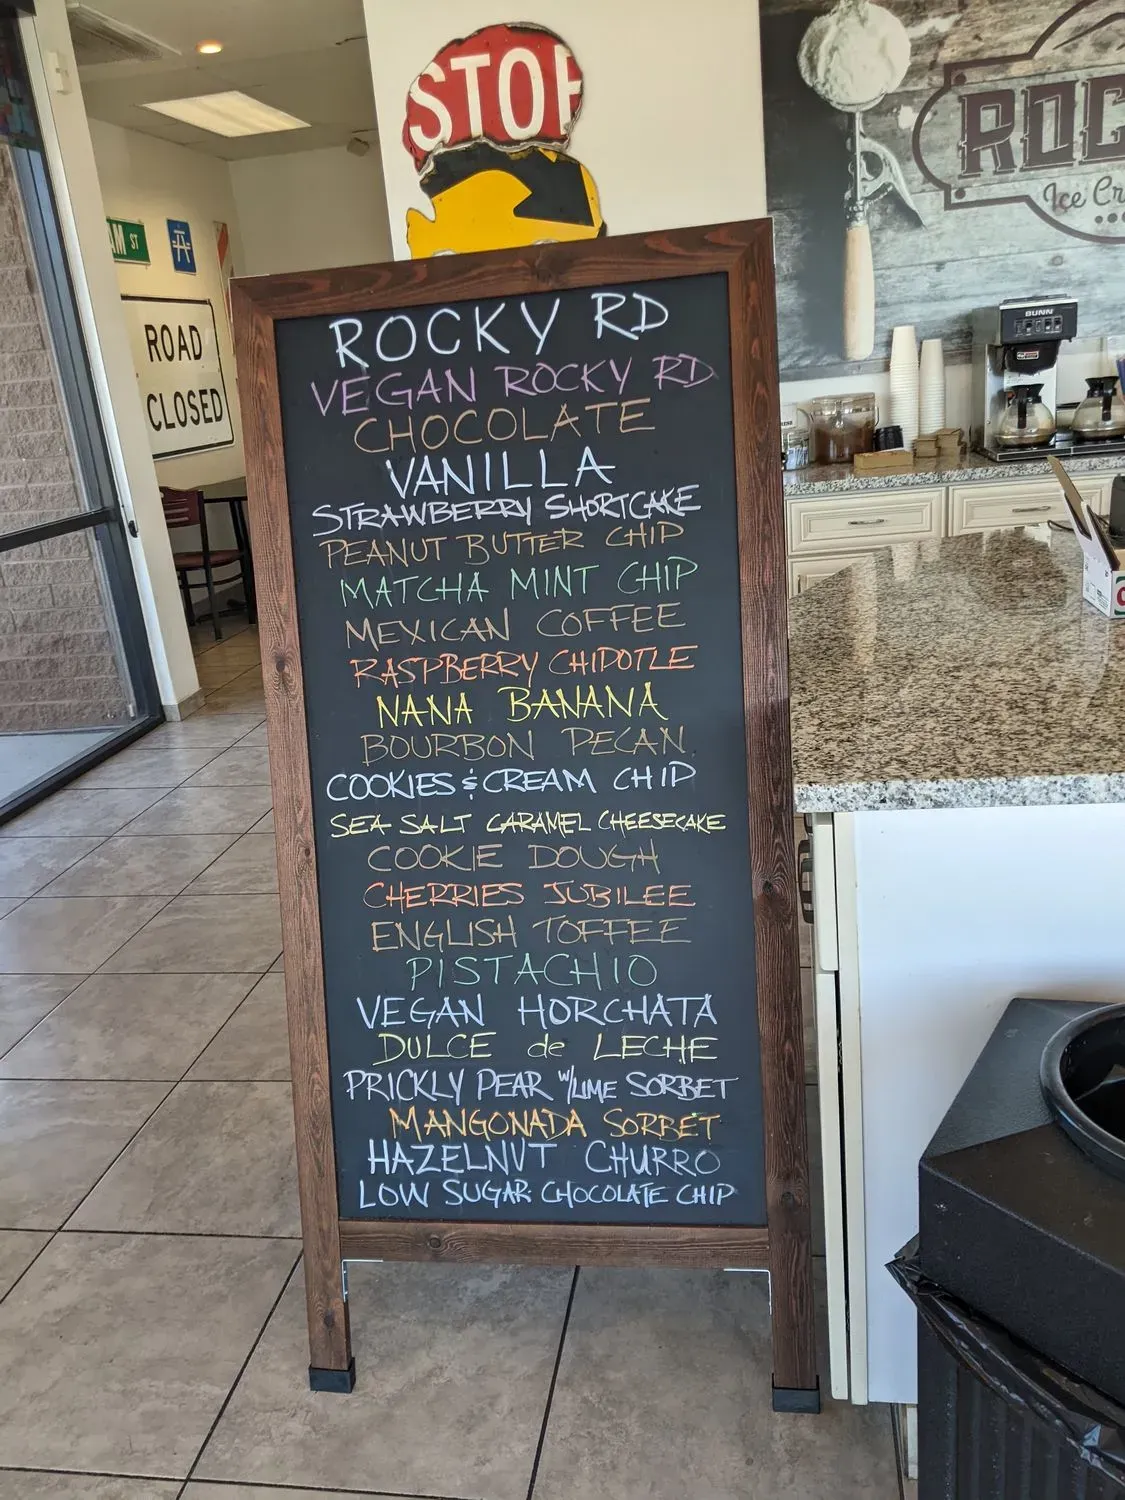 STOP
AM ST
ROAD
CLOSED
ROC
Ice Cr
BUNN
ROCKY RD
VEGAN ROCKY RD
CHOCOLATE
VANILLA
STRAWBERRY SHORTCAKE
PEANUT BUTTER CHIP
MATCHA MINT CHIP
MEXICAN COFFEE
RASPBERRY CHIPOTLE
NANA BANANA
BOURBON PECAN
COOKIES & CREAM CHIP
SEA SALT CARAMEL CHEESECAKE
COOKIE DOUGH
CHERRIES JUBILEE
ENGLISH TOFFEE
PISTACHIO
VEGAN HORCHATA
DULCE de LECHE
PRICKLY PEAR W/LIME SORBET
MANGONADA SORBET
HAZELNUT CHURRO
LOW SUGAR CHOCOLATE CHIP